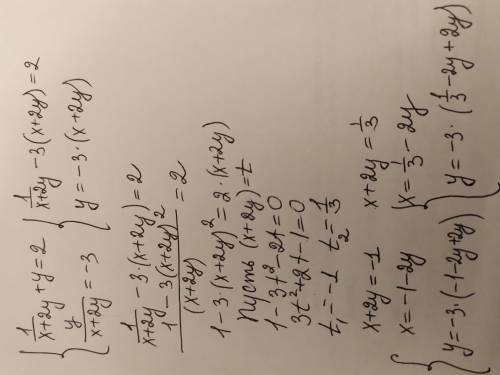 { 1/(x+2y) + y = 2 { 1/(x+2y) - 3(x+2y) = 2
{ y/(x+2y) = -3 { y = -3·(x+2y)
1/(x+2y) - 3·(x+2y) = 2
(1-3(x+2y)²)/(x+2y) = 2
1-3·(x+2y)² = 2·(x+2y)
Пусть (x+2y) = t
1-3t²-2t=0
3t²+2t-1=0
t₁=-1 t₂=1/3
x+2y=-1 x+2y=1/3
x=-1-2y { x=1/3-2y
{ y=-3·(-1-2y+2y) { y=-3·(1/3-2y+2y)